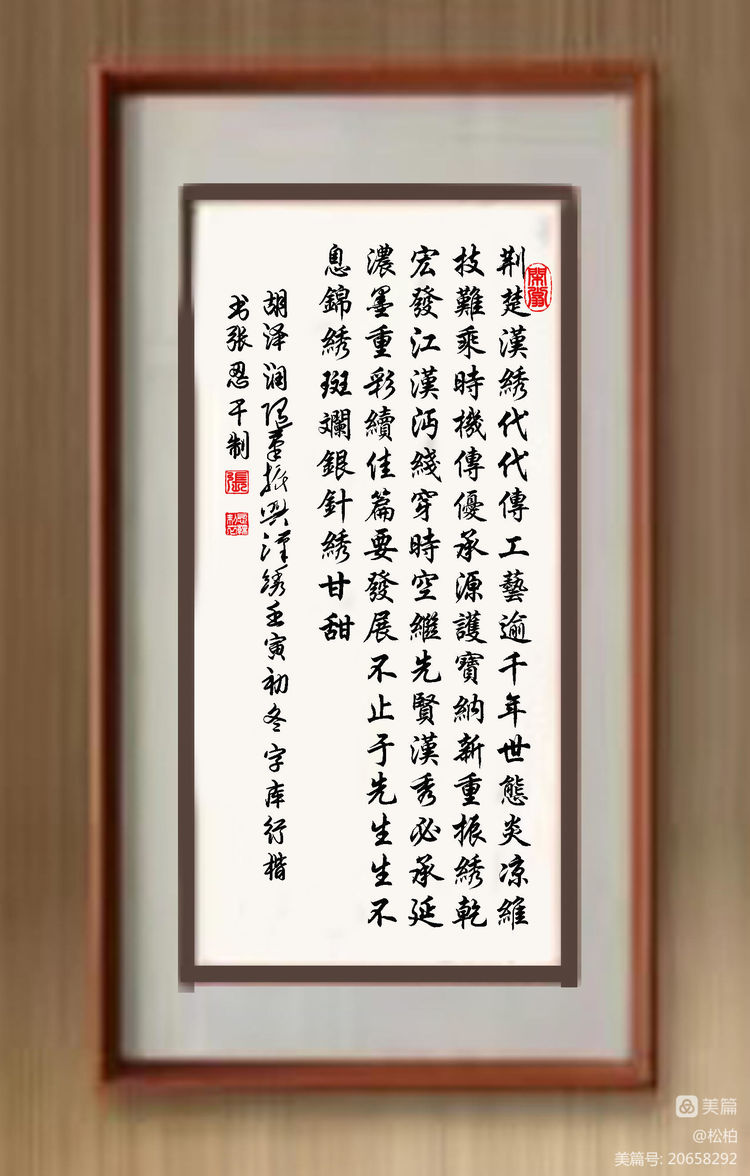 荆楚漢綉代代傳工藝逾千年世態炎凉維
技難乘時機傳優承源護寶納新重振綉乾
宏發江漢沔綫穿時空繼先賢漢秀必承延
濃墨重彩續佳篇要發展不止于先生生不
息錦綉斑斕銀針綉甘甜
胡泽润随筆振興漢绣壬寅初冬字库行楷
书张恩干制
張
美篇
@松柏
美篇号: 20658292